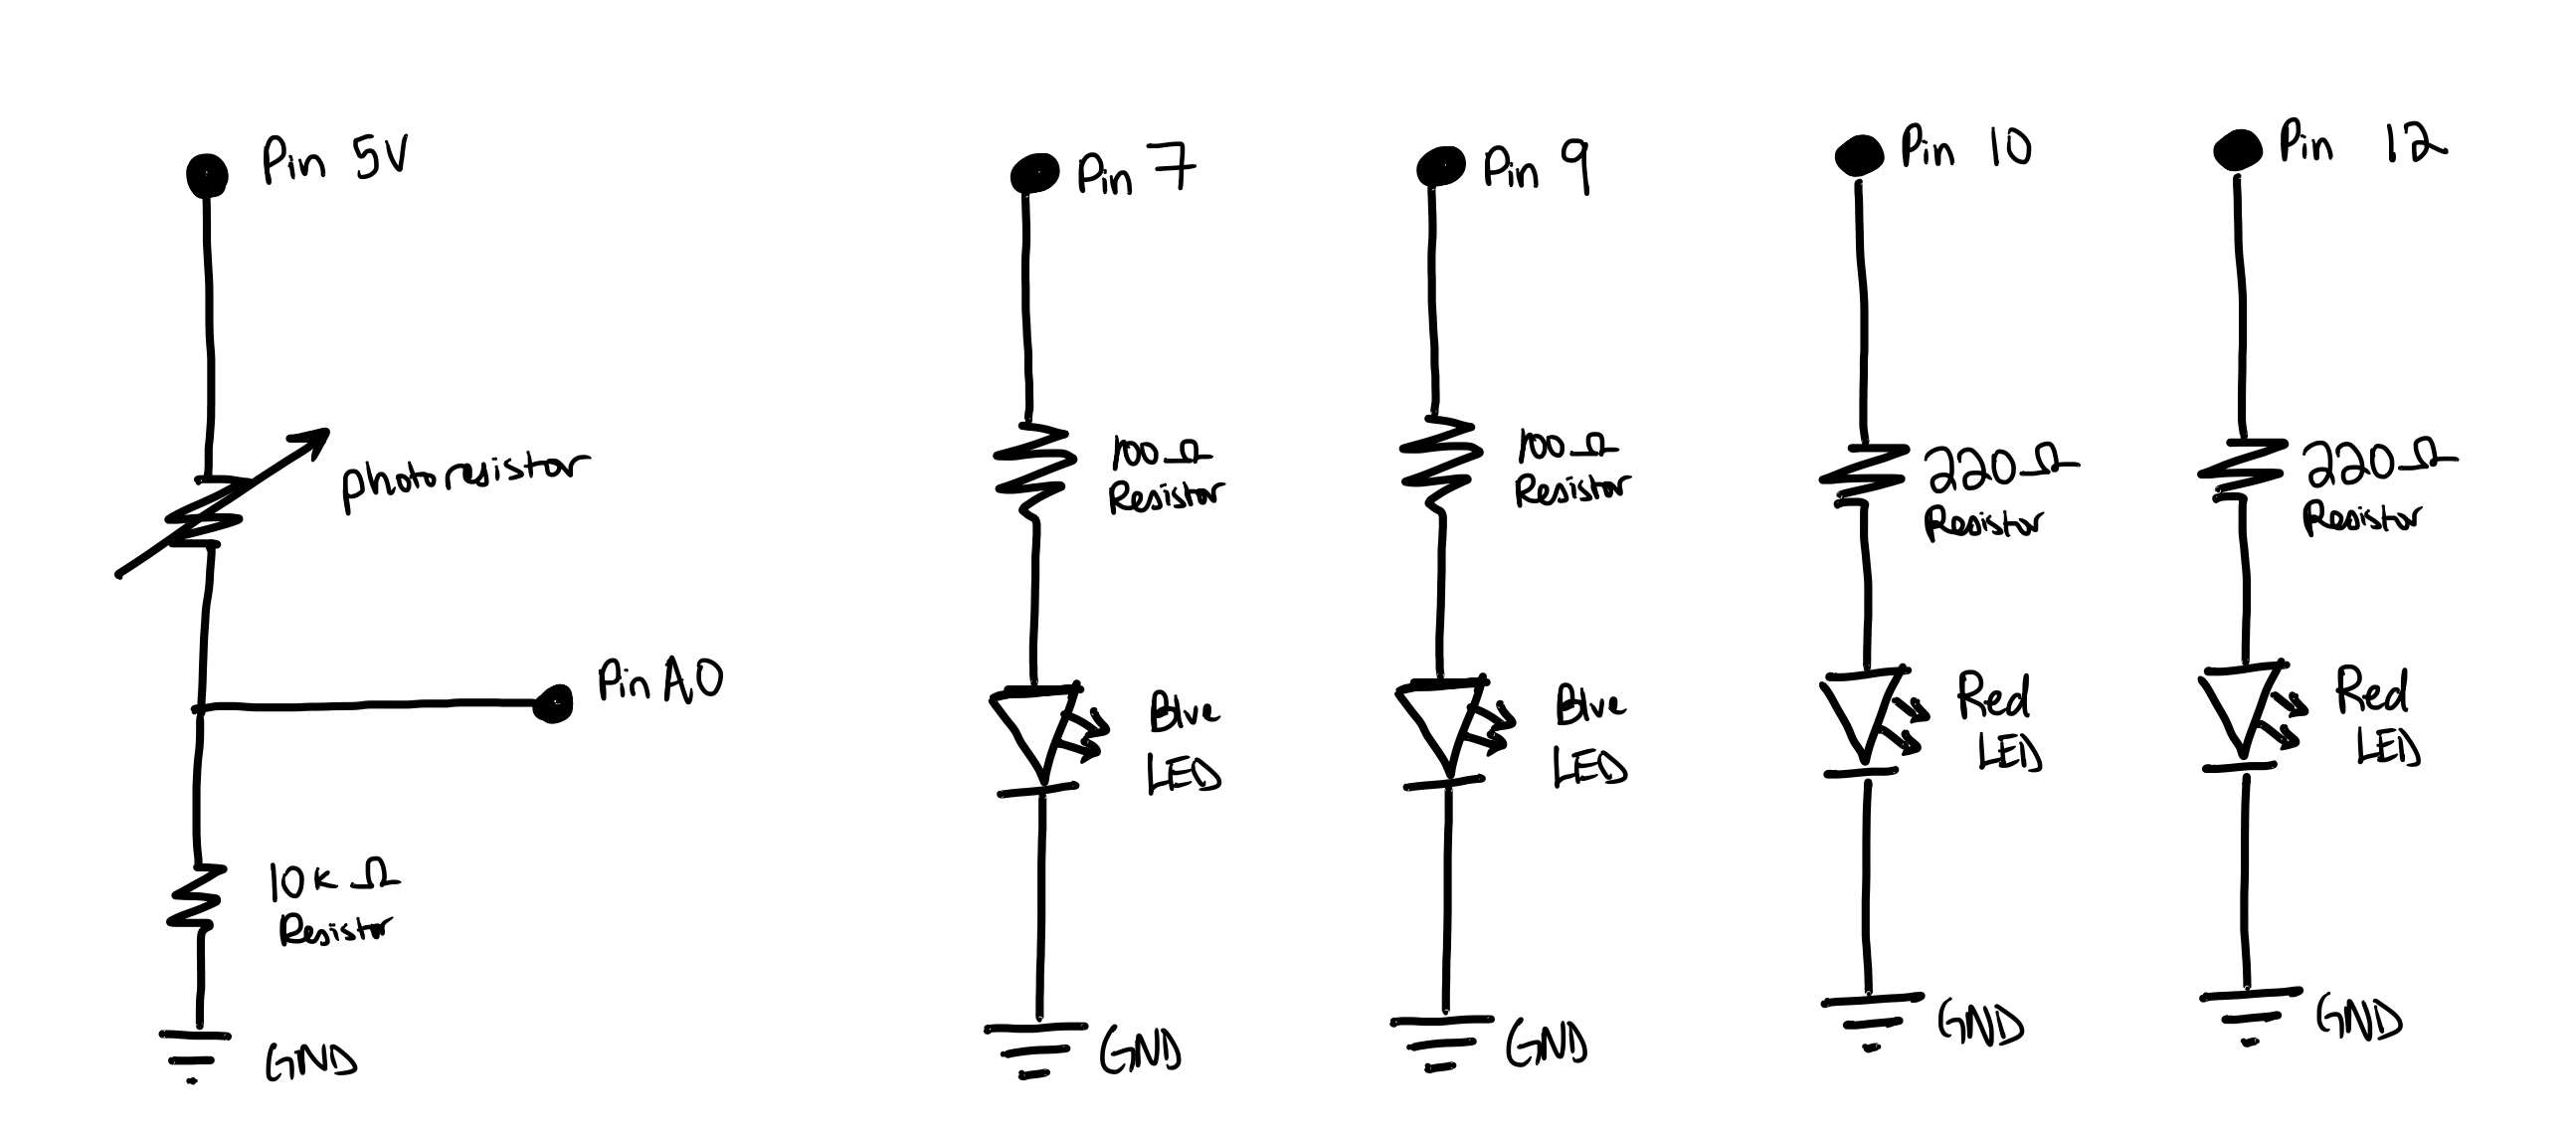 Pin 5V
photoresistor
Pin A0
10K Ω
Resistor
GND
Pin 7
100 Ω
Resistor
Blue
LED
GND
Pin 9
100 Ω
Resistor
Blue
LED
GND
Pin 10
220 Ω
Resistor
Red
LED
GND
Pin 12
220 Ω
Resistor
Red
LED
GND